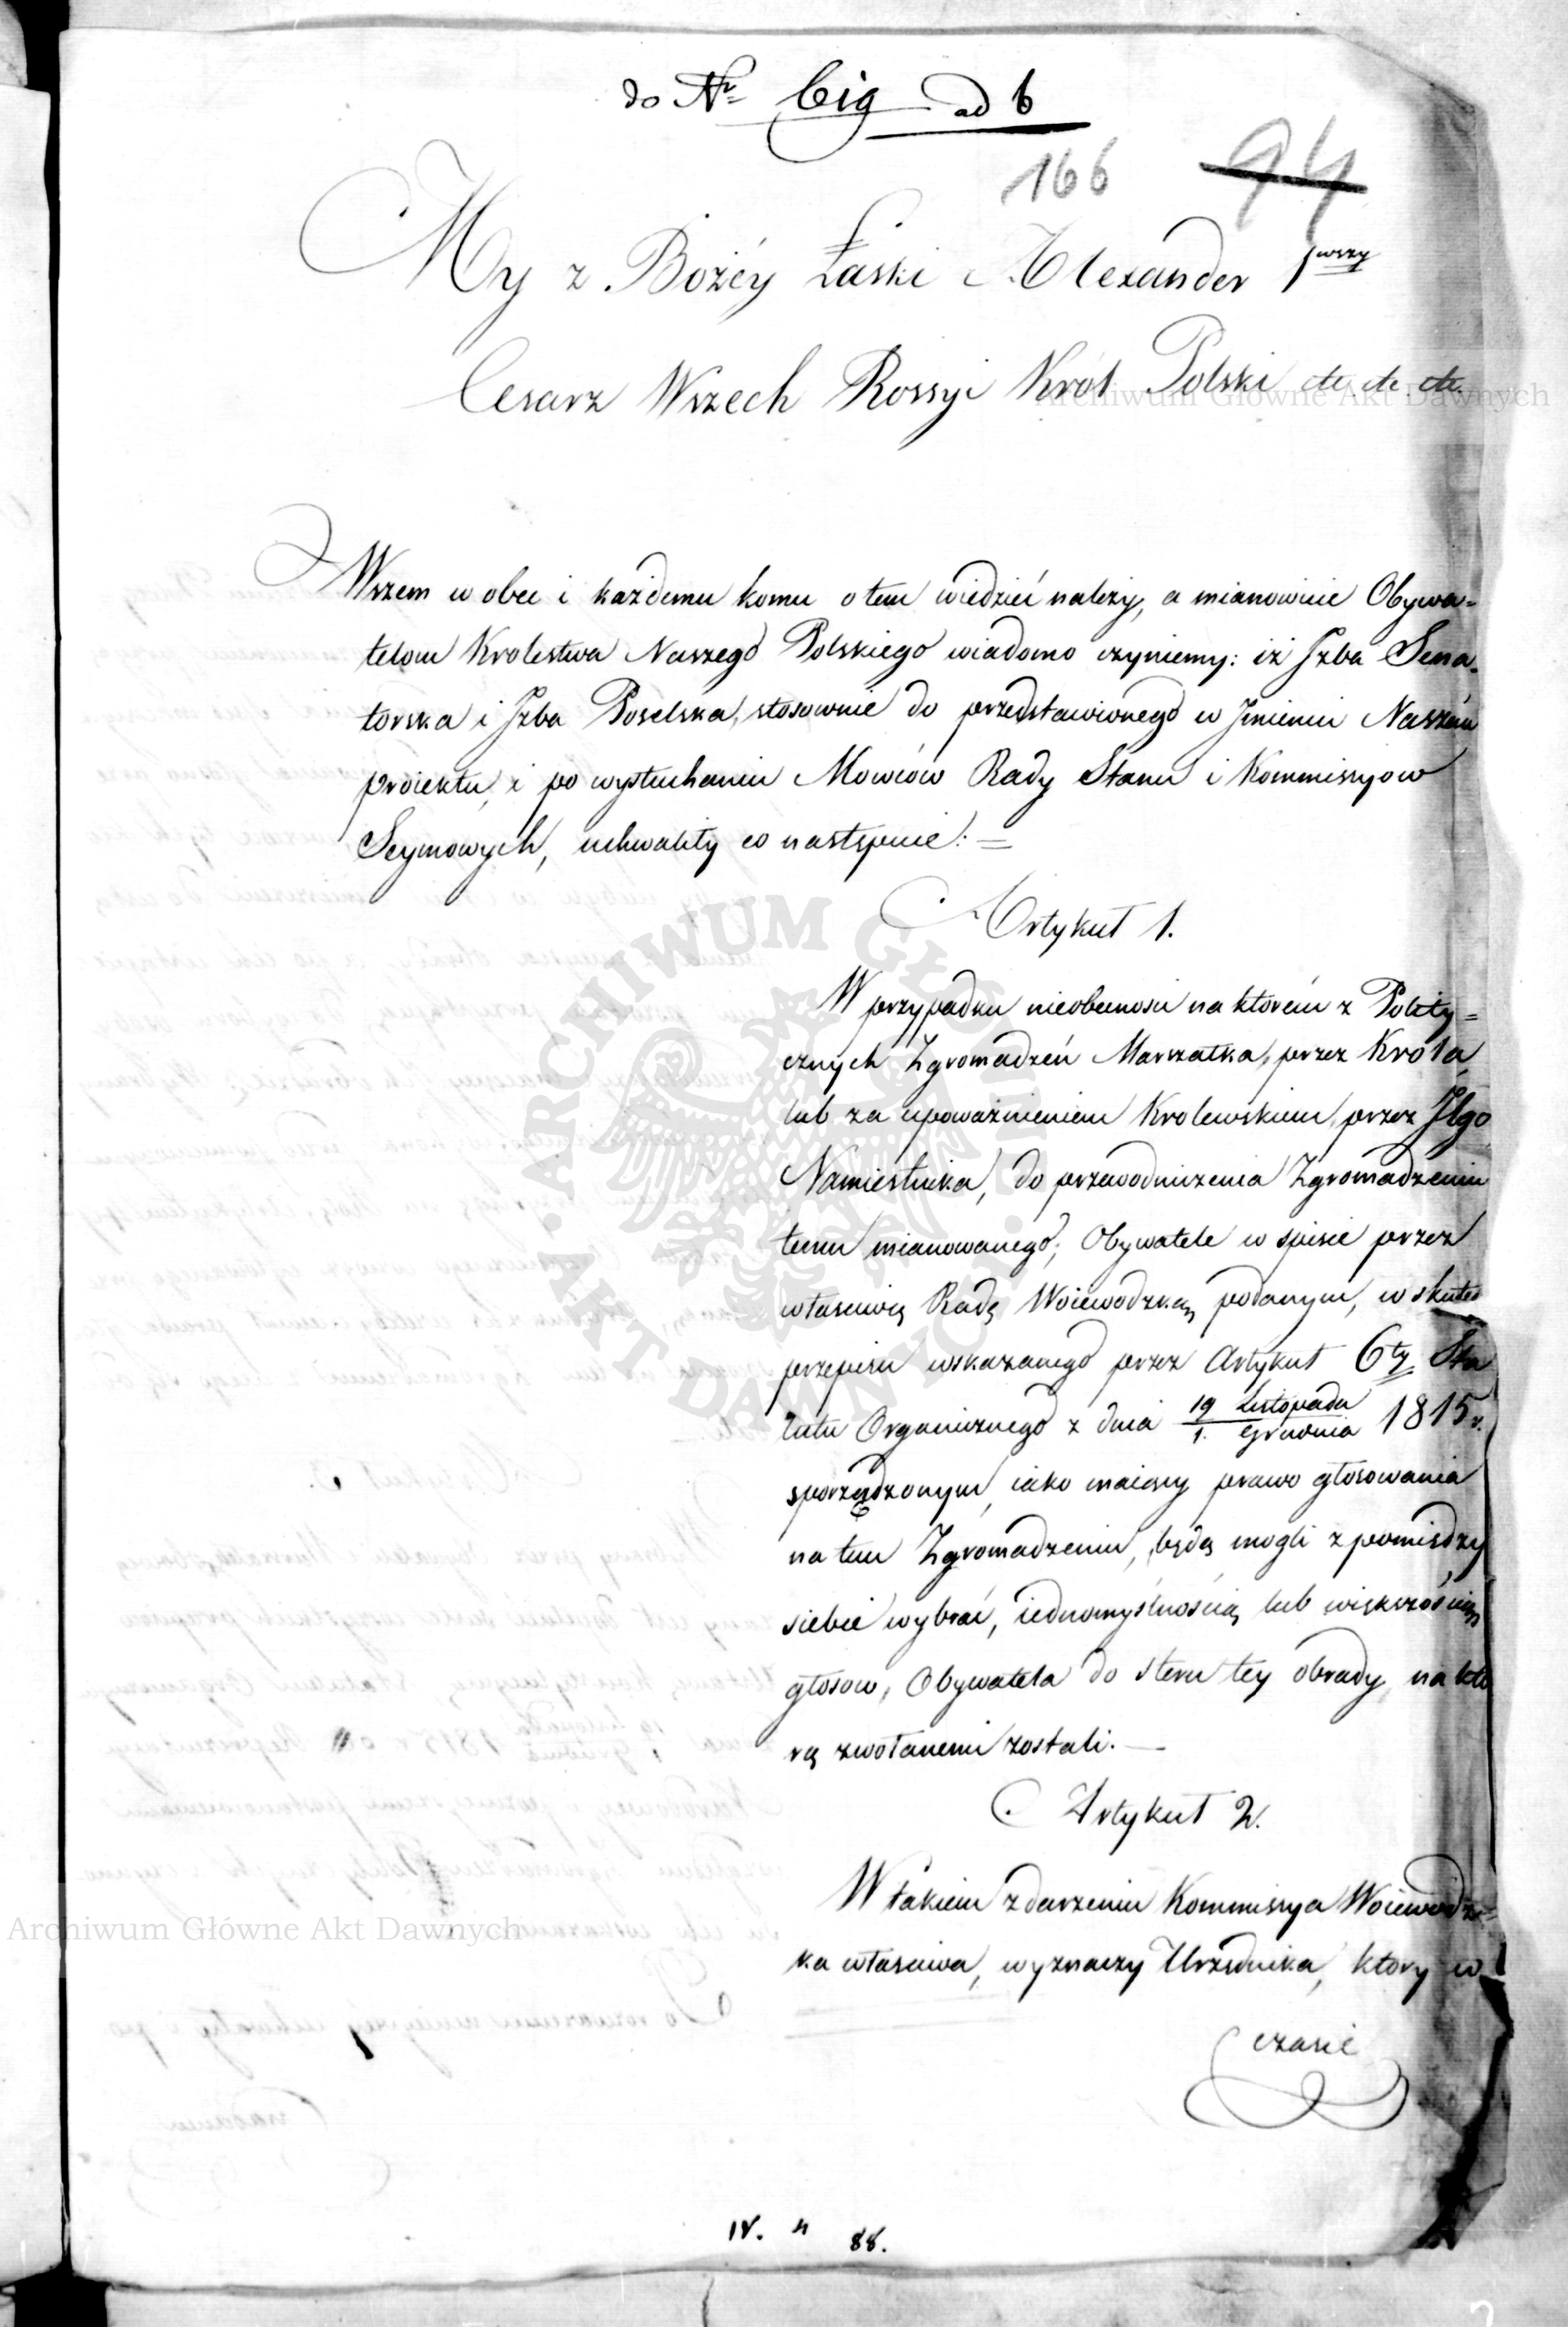 do Nr big ad b
166 94
My z Bożéy Łaski Alexander 1wszy
Cesarz Wszech Rossyi Król Polski etc etc etc.
Archiwum Główne Akt Dawnych
Wszem w obec i każdemu komu o tem wiedzieć należy, a mianowicie Obywa=
telom Krolestwa Naszego Polskiego wiadomo czyniemy: iż Jzba Sena-
torska i Jzba Poselska, stosownie do przedstawionego w Jmieniu Naszém
proiektu, i po wysłuchaniu Mowców Rady Stanu i Kommissyow
Seymowych, uchwaliły co następuie: =
Artykuł 1.
W przypadku nieobecnosci na ktorém z Polity=
cznych Zgromadzeń Marszałka, przez Króla,
lub za upoważnieniem Krolewskiem, przez Jego
Namiestnika, do przewodniczenia Zgromadzeniu
temu mianowanego; Obywatele w spisie przez
własciwą Radę Woiewodzką podanym, w skutek
przepisu wskazanego przez Artykuł 6ty Sta
tutu Organicznego z dnia 19 Listopada / 1. Grudnia 1815 r.
sporządzonym, iako maiący prawo głosowania
na tem Zgromadzeniu, będą mogli z pomiędzy
siebie wybrać, iednomyślnością lub większością
głosow, Obywatela do steru tey obrady, na kto
rą zwołanemi zostali. —
Artykuł 2.
W takiem zdarzeniu Kommissya Woiewodz=
ka własciwa, wyznaczy Urzędnika, ktory w
czasie
Archiwum Główne Akt Dawnych
ARCHIWUM GŁÓWNE AKT DAWNYCH
IV. 4 88.